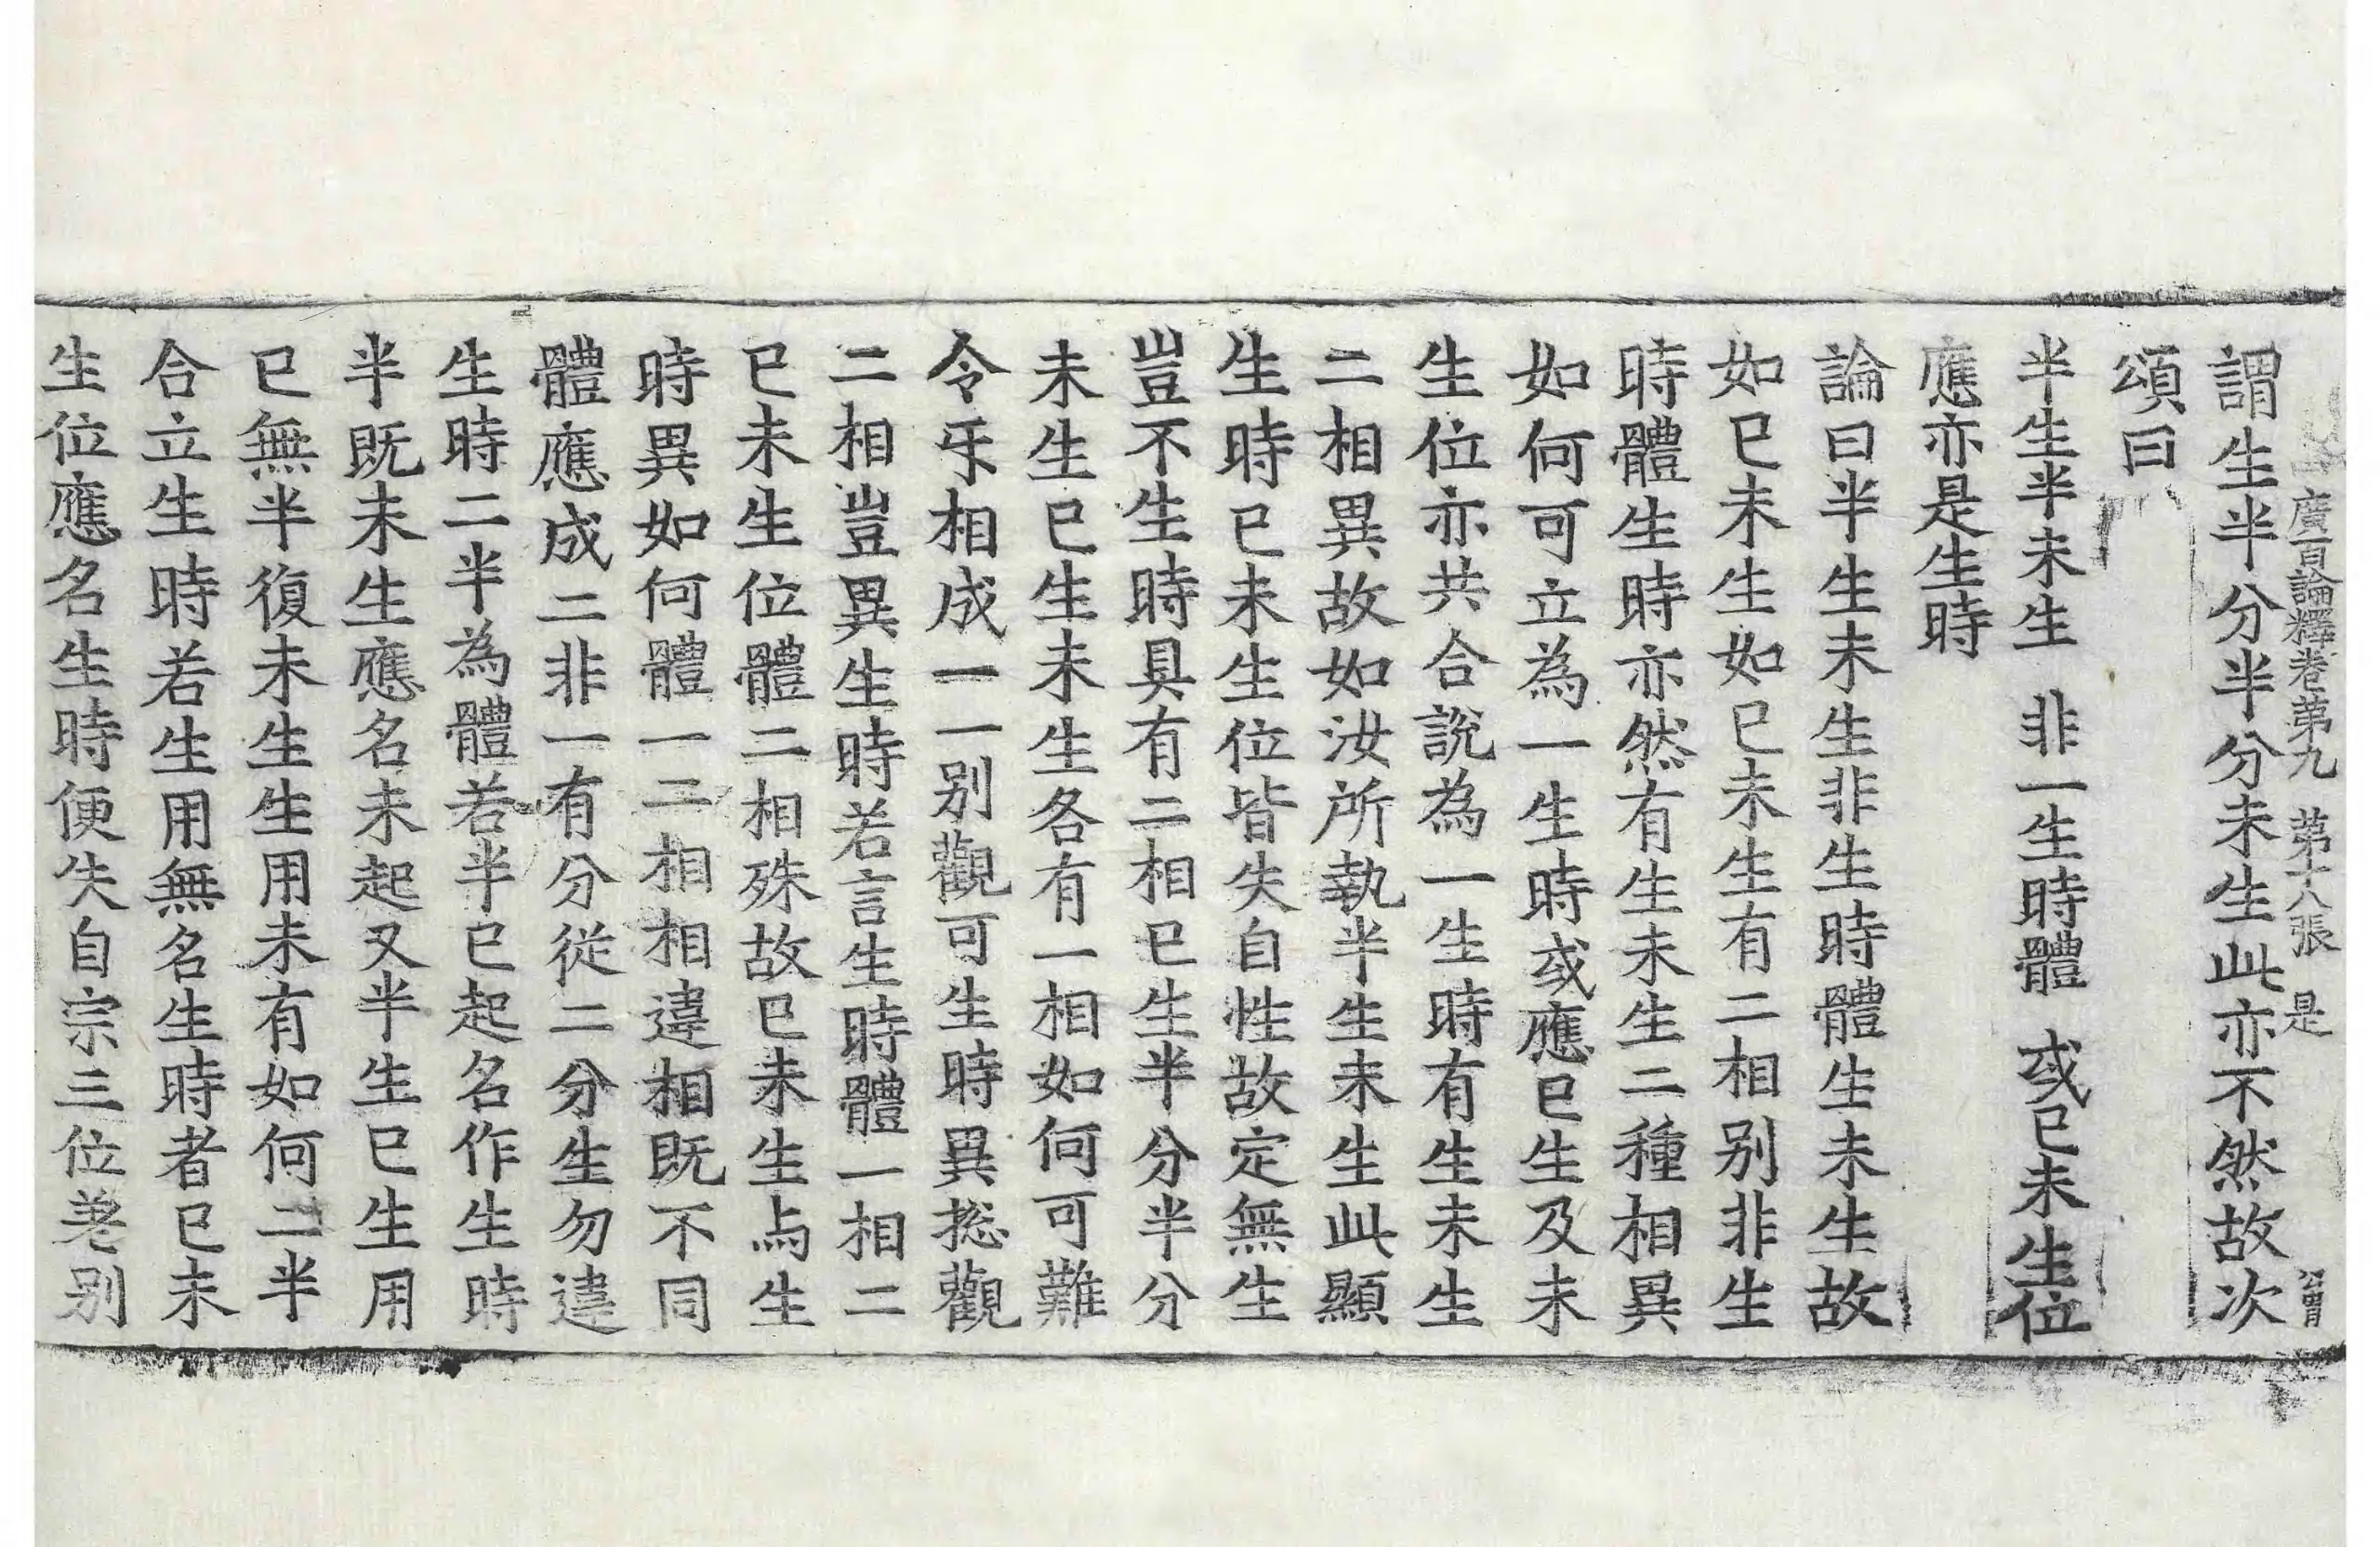 廣百論釋卷第九　第十八張　是
謂生半分半分未生此亦不然故次
頌曰
半生半未生　非一生時體　或已未生位
應亦是生時
論曰半生未生非生時體生未生故
如已未生如已未生有二相別非生
時體生時亦然有生未生二種相異
如何可立為一生時或應已生及未
生位亦共合說為一生時有生未生
二相異故如汝所執半生未生此顯
生時已未生位皆失自性故定無生
豈不生時具有二相已生半分半分
未生已生未生各有一相如何可難
令乐相成一一別觀可生時異揔觀
二相豈異生時若言生時體一相二
已未生位體二相殊故已未生与生
時異如何體一二相相違相既不同
體應成二非一有分從二分生勿違
生時二半為體若半已起名作生時
半既未生應名未起又半生已生用
已無半復未生生用未有如何二半
合立生時若生用無名生時者已未
生位應名生時便失自宗三位差別